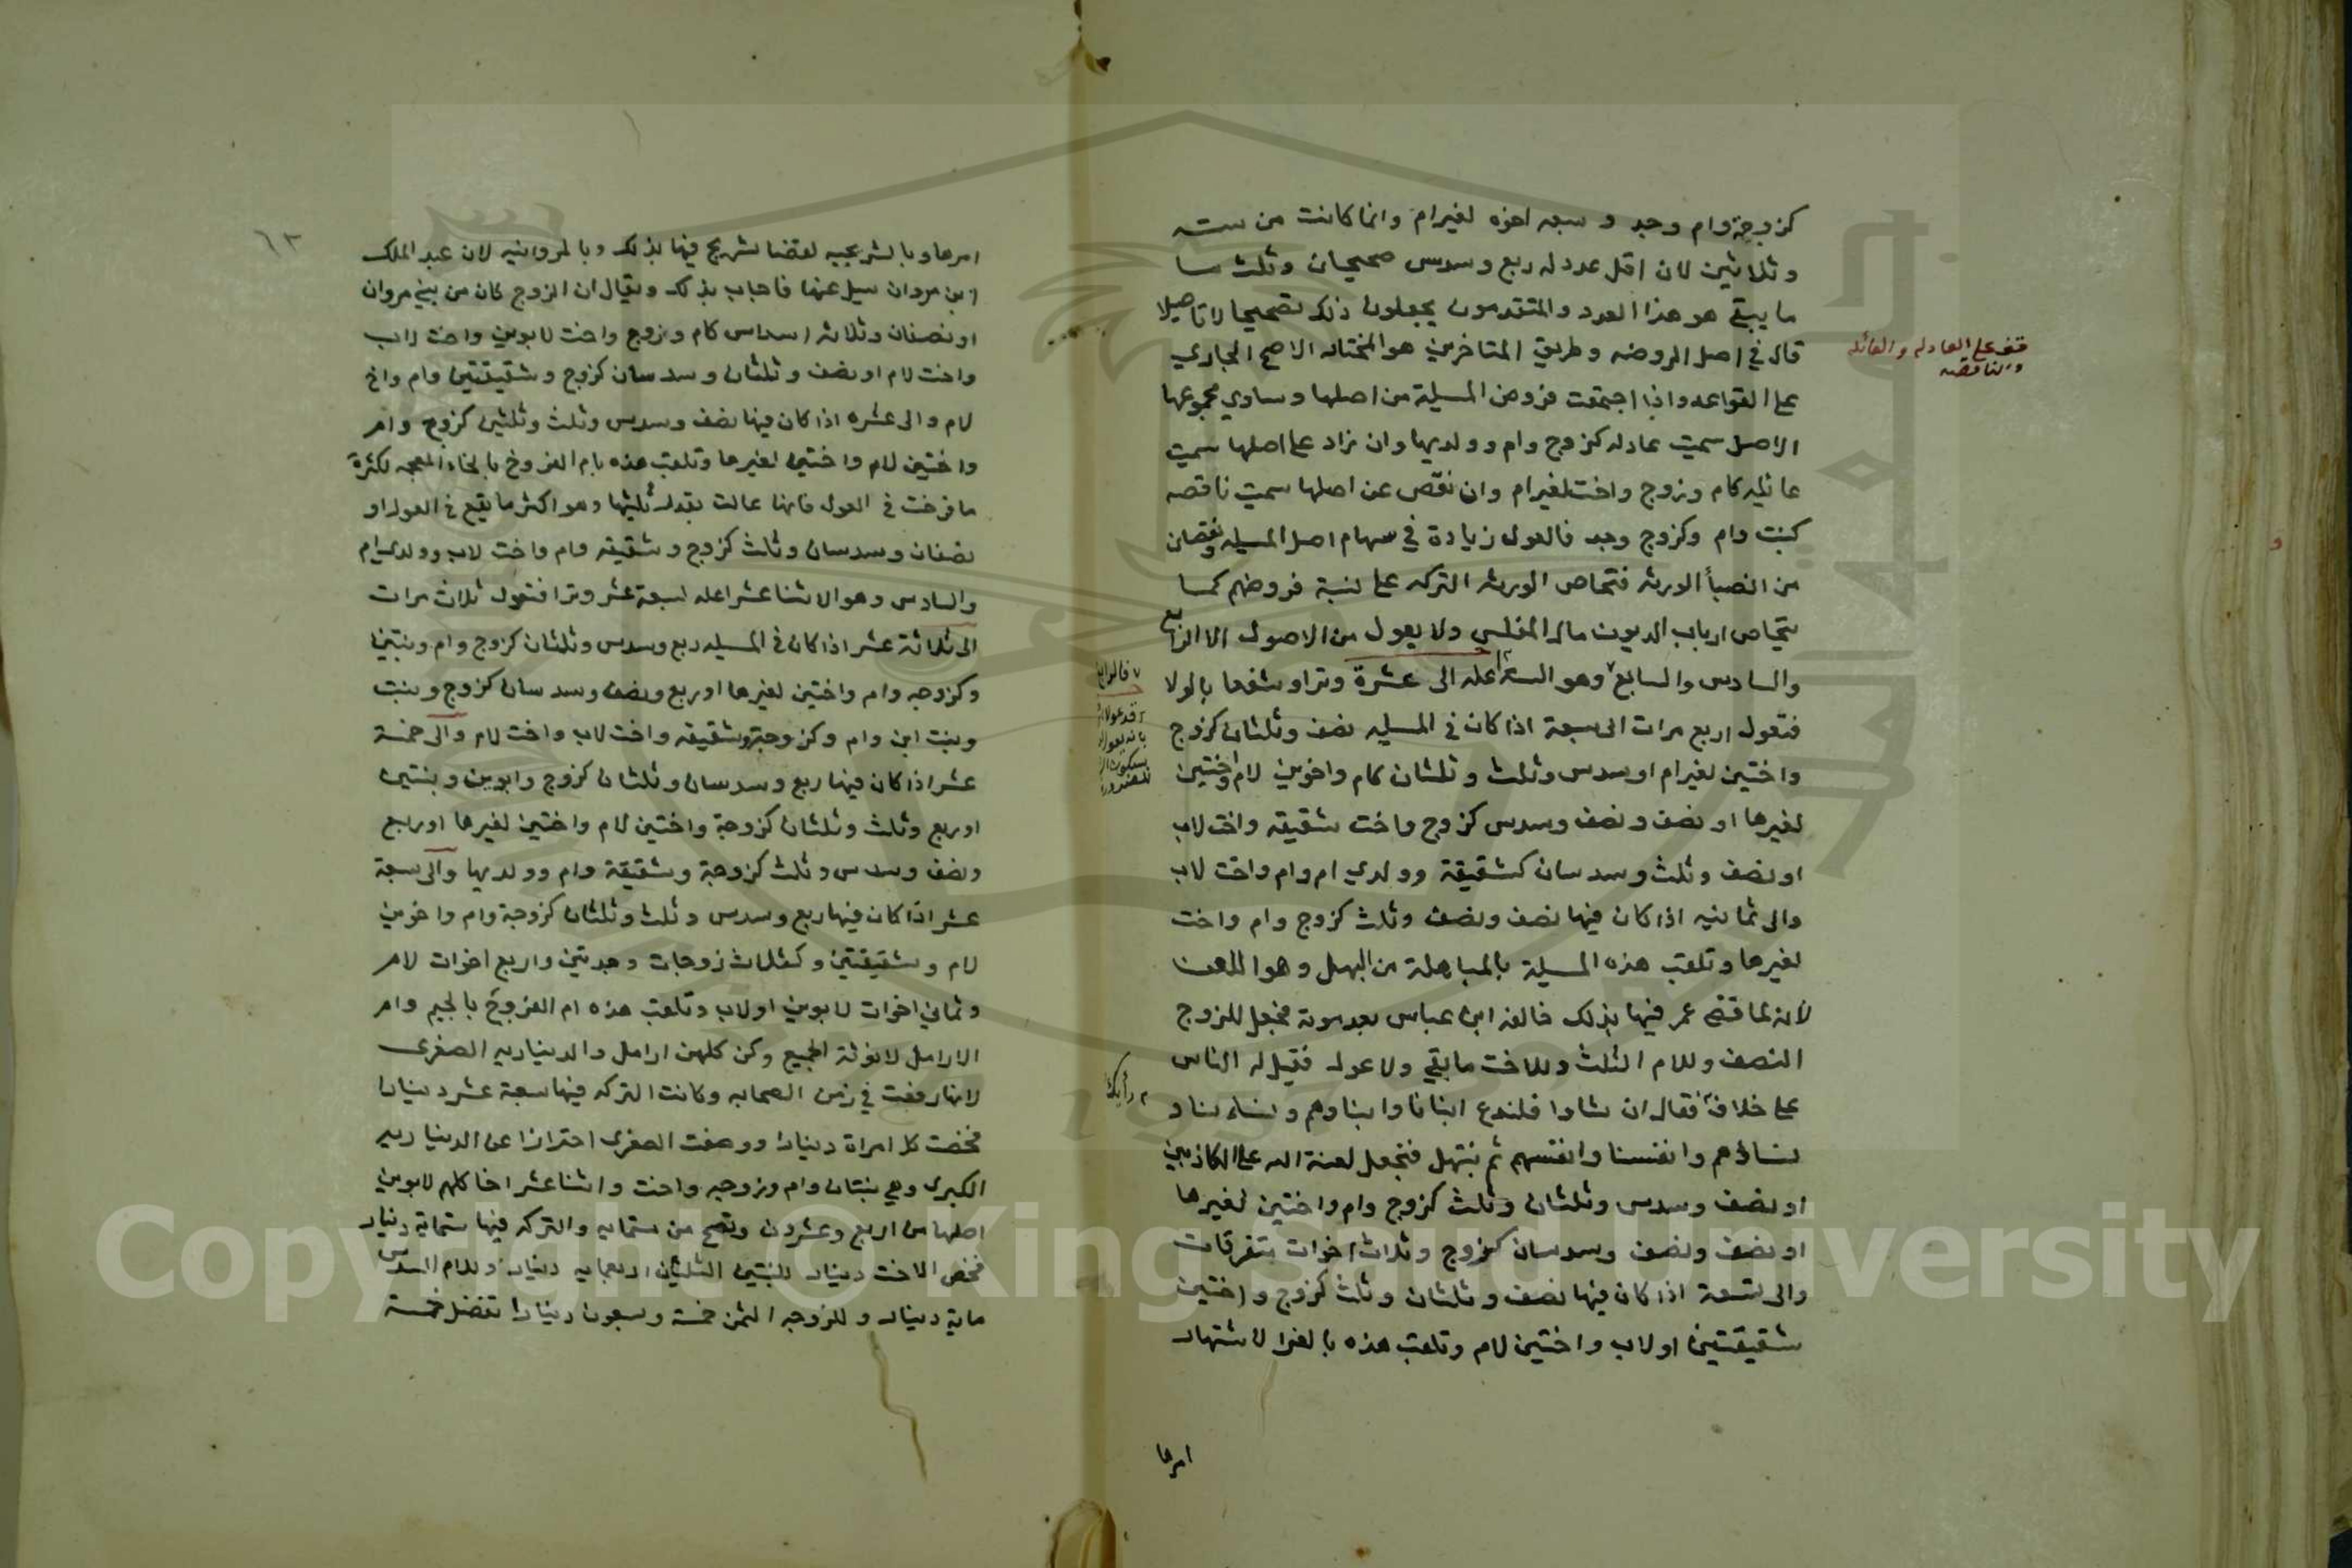 كزوجة وام وجد و سبعه اخوه لغير ام وانما كانت من سته
وثلاثين لان اقل عدد له ربع وسدس صحيحان وثلث مـا
ما يبقى هو هذا العدد والمتقدمون يجعلون ذلك تصحيحا لا تاصيلا
قال في اصل الروضه وطريق المتاخرين هو المختار الاصح الجاري
على القواعد واذا اجتمعت فروض المسيلة من اصلها وساوي مجموعها
الاصل سميت عادله كزوج وام وولديها وان زاد على اصلها سميت
عائله كام وزوج واخت لغير ام وان نقص عن اصلها سميت ناقصه
كبنت وام وكزوج وجد فالعول زيادة في سهام اصل المسيله ونقصان
من انصبأ الورثه فتحاص الورثه التركه على نسبة فروضهم كما
يتحاص ارباب الديون مال المفلس ولا يعول من الاصول الا الرابع
والسادس والسابع وهو الستة اعله الى عشرة وترا وشفعا بالولا
فتعول اربع مرات الى سبعة اذا كان في المسيله نصف وثلثان كزوج
واختين لغير ام او سدس وثلث وثلثان كام واخوين لام واختين
لغيرها او نصف ونصف وسدس كزوج واخت شقيقه واخت لاب
او نصف وثلث وسدسان كشقيقة وولدي ام وام واخت لاب
والى ثمانيه اذا كان فيها نصف ونصف وثلث كزوج وام واخت
لغيرها وتلقب هذه المسيلة بالمباهلة من البهل وهو اللعن
لانه لما قضى عمر فيها بذلك خالفه ابن عباس بعد موته فجعل للزوج
النصف وللام الثلث وللاخت ما بقي ولا عول فقيل له الناس
على خلاف فقال ان شاوا فلندع ابنانا وابناوهم ونساءنا و
نساؤهم وانفسنا وانفسهم ثم نبتهل فنجعل لعنة الله على الكاذبين
او نصف وسدس وثلثان وثلث كزوج وام واختين لغيرها
او نصف ونصف وسدسان كزوج وثلاث اخوات متفرقات
والى تسعة اذا كان فيها نصف وثلثان وثلث كزوج واختين
شقيقتين او لاب واختين لام وتلقب هذه بالغرا لاشتهار
امرها
قف على العادله والعائله
والناقصه
فالرابع
رأيك
٦٣
امرها وبالشريحيه لقضا شريح فيها بذلك وبالمروانيه لان عبد الملك
ابن مروان سيل عنها فاجاب بذلك ويقال ان الزوج كان من بني مروان
او نصفان وثلاثه اسداس كام وزوج واخت لابوين واخت لاب
واخت لام او نصف وثلثان وسدسان كزوج وشقيقتين وام واخ
لام والى عشره اذا كان فيها نصف وسدس وثلث وثلثين كزوج وام
واختين لام واختين لغيرها وتلقب هذه بام الفروخ بالخاء المعجمه لكثرة
ما فرخت في العول فانها عالت بقدر ثلثيها وهو اكثر ما يقع في العول او
نصفان وسدسان وثلث كزوج وشقيقه وام واخت لاب وولدي ام
والسادس وهو الاثنا عشر اعله لسبعة عشر وترا فتعول ثلاث مرات
الى ثلاثة عشر اذا كان في المسيله ربع وسدس وثلثان كزوج وام وبنتين
وكزوجه وام واختين لغيرها او ربع ونصف وسدسان كزوج وبنت
وبنت ابن وام وكزوجة وشقيقه واخت لاب واخت لام والى خمسة
عشر اذا كان فيها ربع وسدسان وثلثان كزوج وابوين وبنتين
او ربع وثلث وثلثان كزوجة واختين لام واختين لغيرها او ربع
ونصف وسدس وثلث كزوجة وشقيقة وام وولديها والى سبعة
عشر اذا كان فيها ربع وسدس وثلث وثلثان كزوجة وام واخوين
لام وشقيقتين وكثلاث زوجات وجدتين واربع اخوات لام
وثماني اخوات لابوين او لاب وتلقب هذه ام الفروج بالجيم وام
الارامل لانوثة الجميع وكن كلهن ارامل والديناريه الصغرى
لانها رفعت في زمن الصحابه وكانت التركه فيها سبعة عشر دينارا
فخصت كل امراة دينارا ووصفت الصغرى احترازا عن الديناريه
الكبرى وهي بنتان وام وزوجه واخت واثنا عشر اخا كلهم لابوين
اصلها من اربع وعشرون وتصح من ستمايه والتركه فيها ستماية دينار
فخص الاخت دينار للبنتين الثلثين اربعمايه دينار وللام السدس
ماية دينار وللزوجه الثمن خمسة وسبعون دينارا تفضل خمسة
Copyright © King Saud University